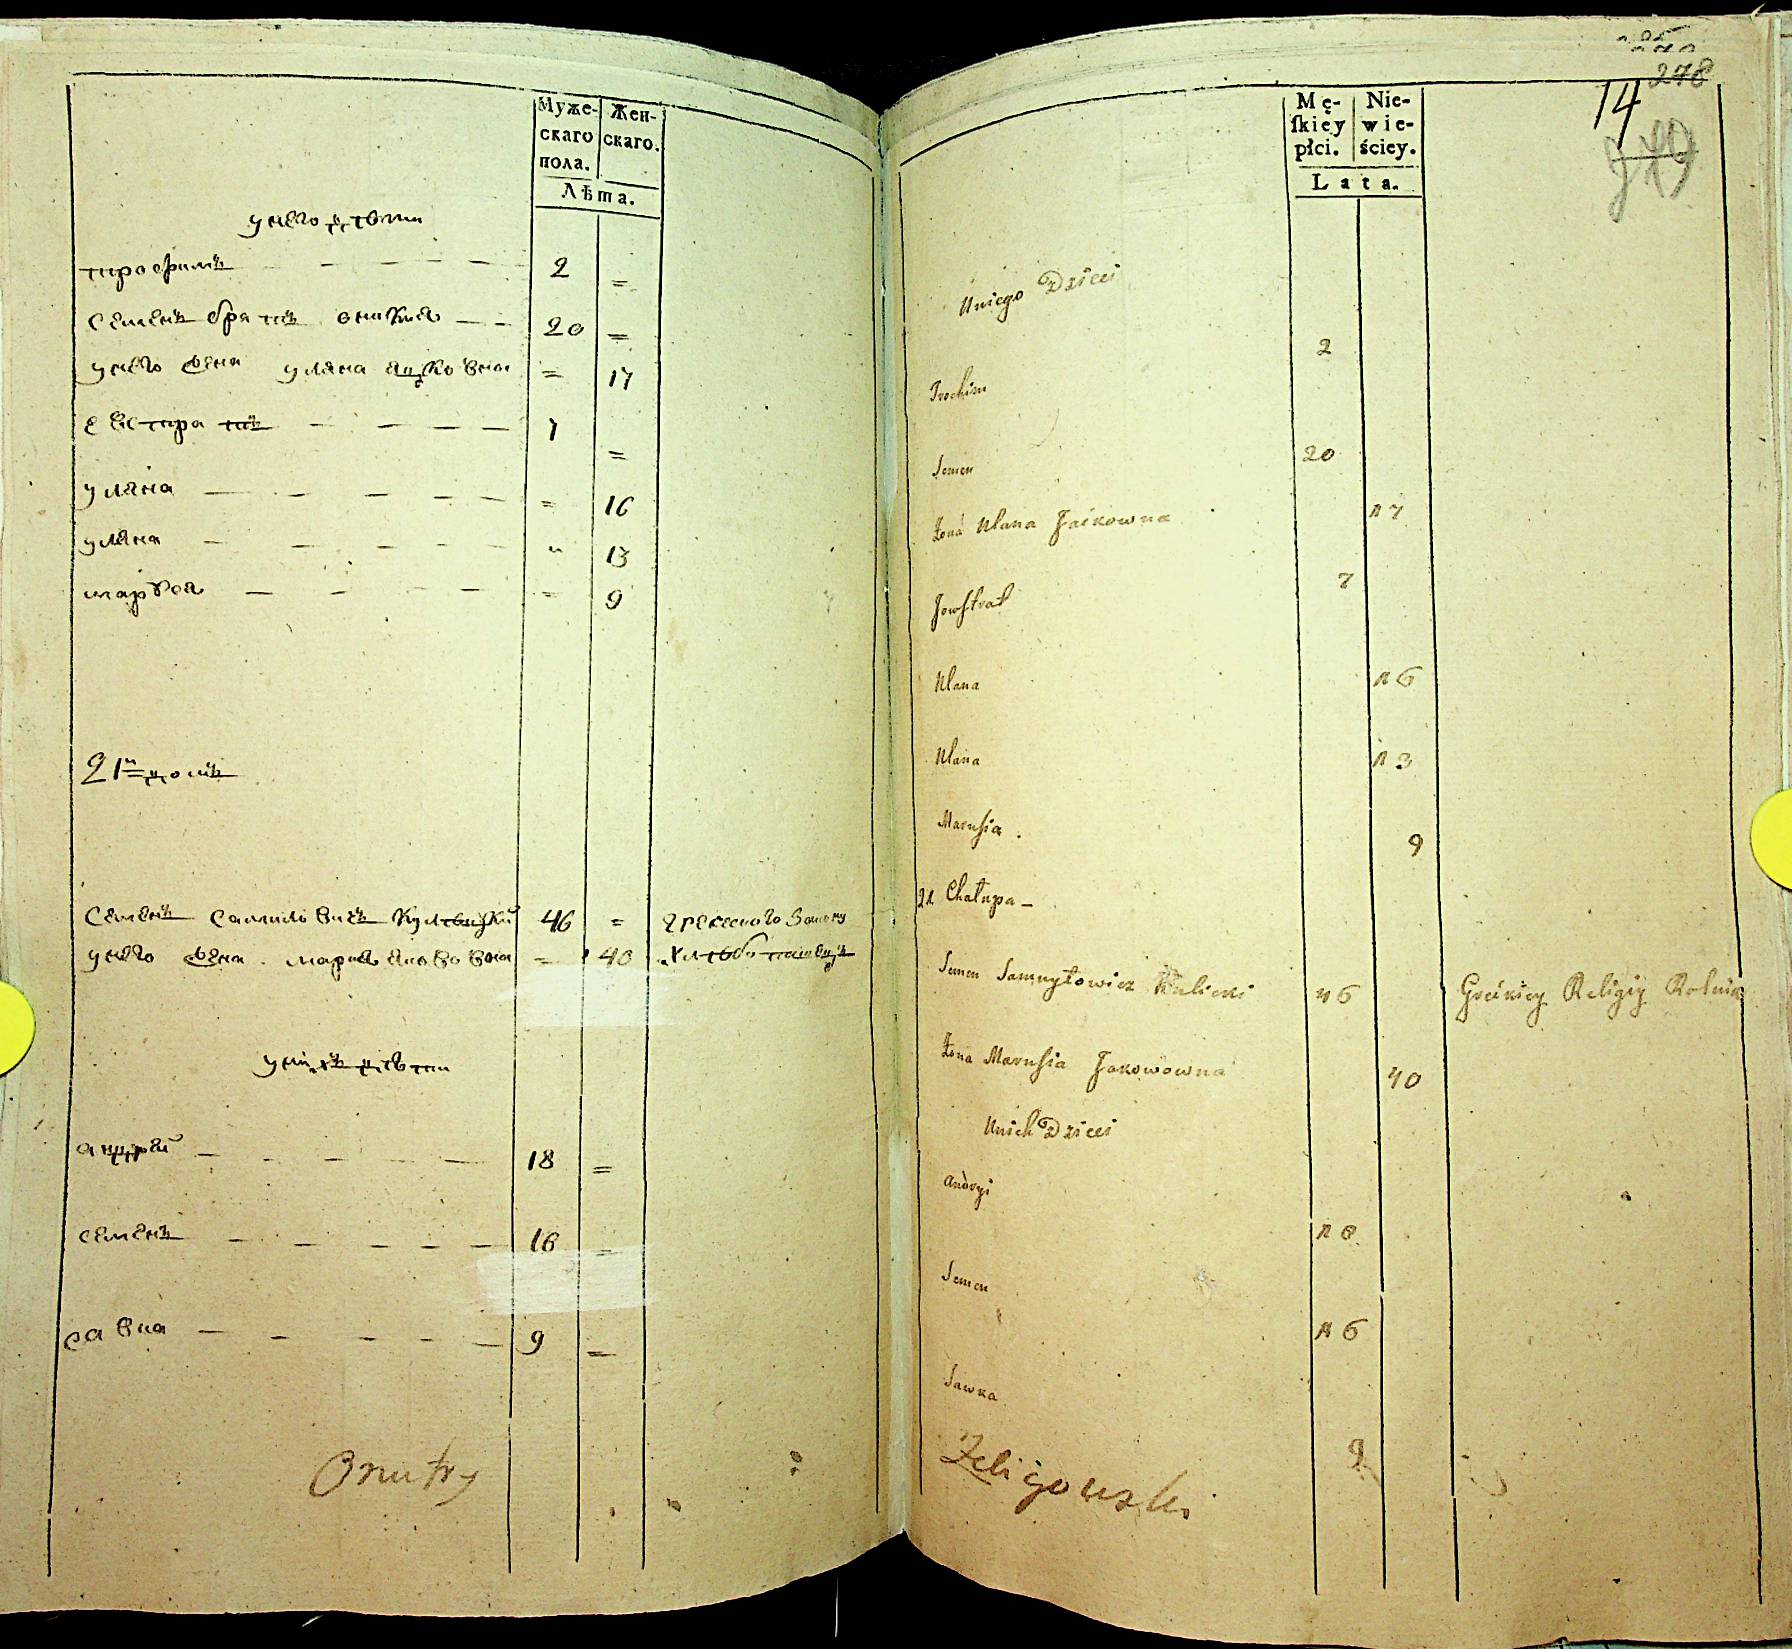 Муже-
скаго
пола.
Жен-
скаго.
Лѣта.
у него дѣти
трофимъ 2 =
Семенъ братъ 20 =
у него жена уляна = 17
евстратъ 7 =
уляна = 16
уляна " 13
марѳея = 9
21й домъ
Семенъ Самиловичъ 46 = греческого закону
у него жена марья = 40 хлѣбопашецъ
у нихъ дѣти
андрей 18 =
семенъ 16 =
савка 9 =
278
14
Mę-
ſkiey
płci.
Nie-
wie-
ściey.
Lata.
Uniego Dzieci
Trochim 2
Semen 20
Żona Ulana Jackowna 17
Jowſtrat 7
Ulana 16
Ulana 13
Maruſia . 9
21 Chałupa -
Semen Samuyłowicz Kulicki 46 Greckiey Religiy Rolnik
Żona Maruſia Jakowowna 40
Unich Dzieci
Andryi 18
Semen 16
Sawka 9
Zeligowski